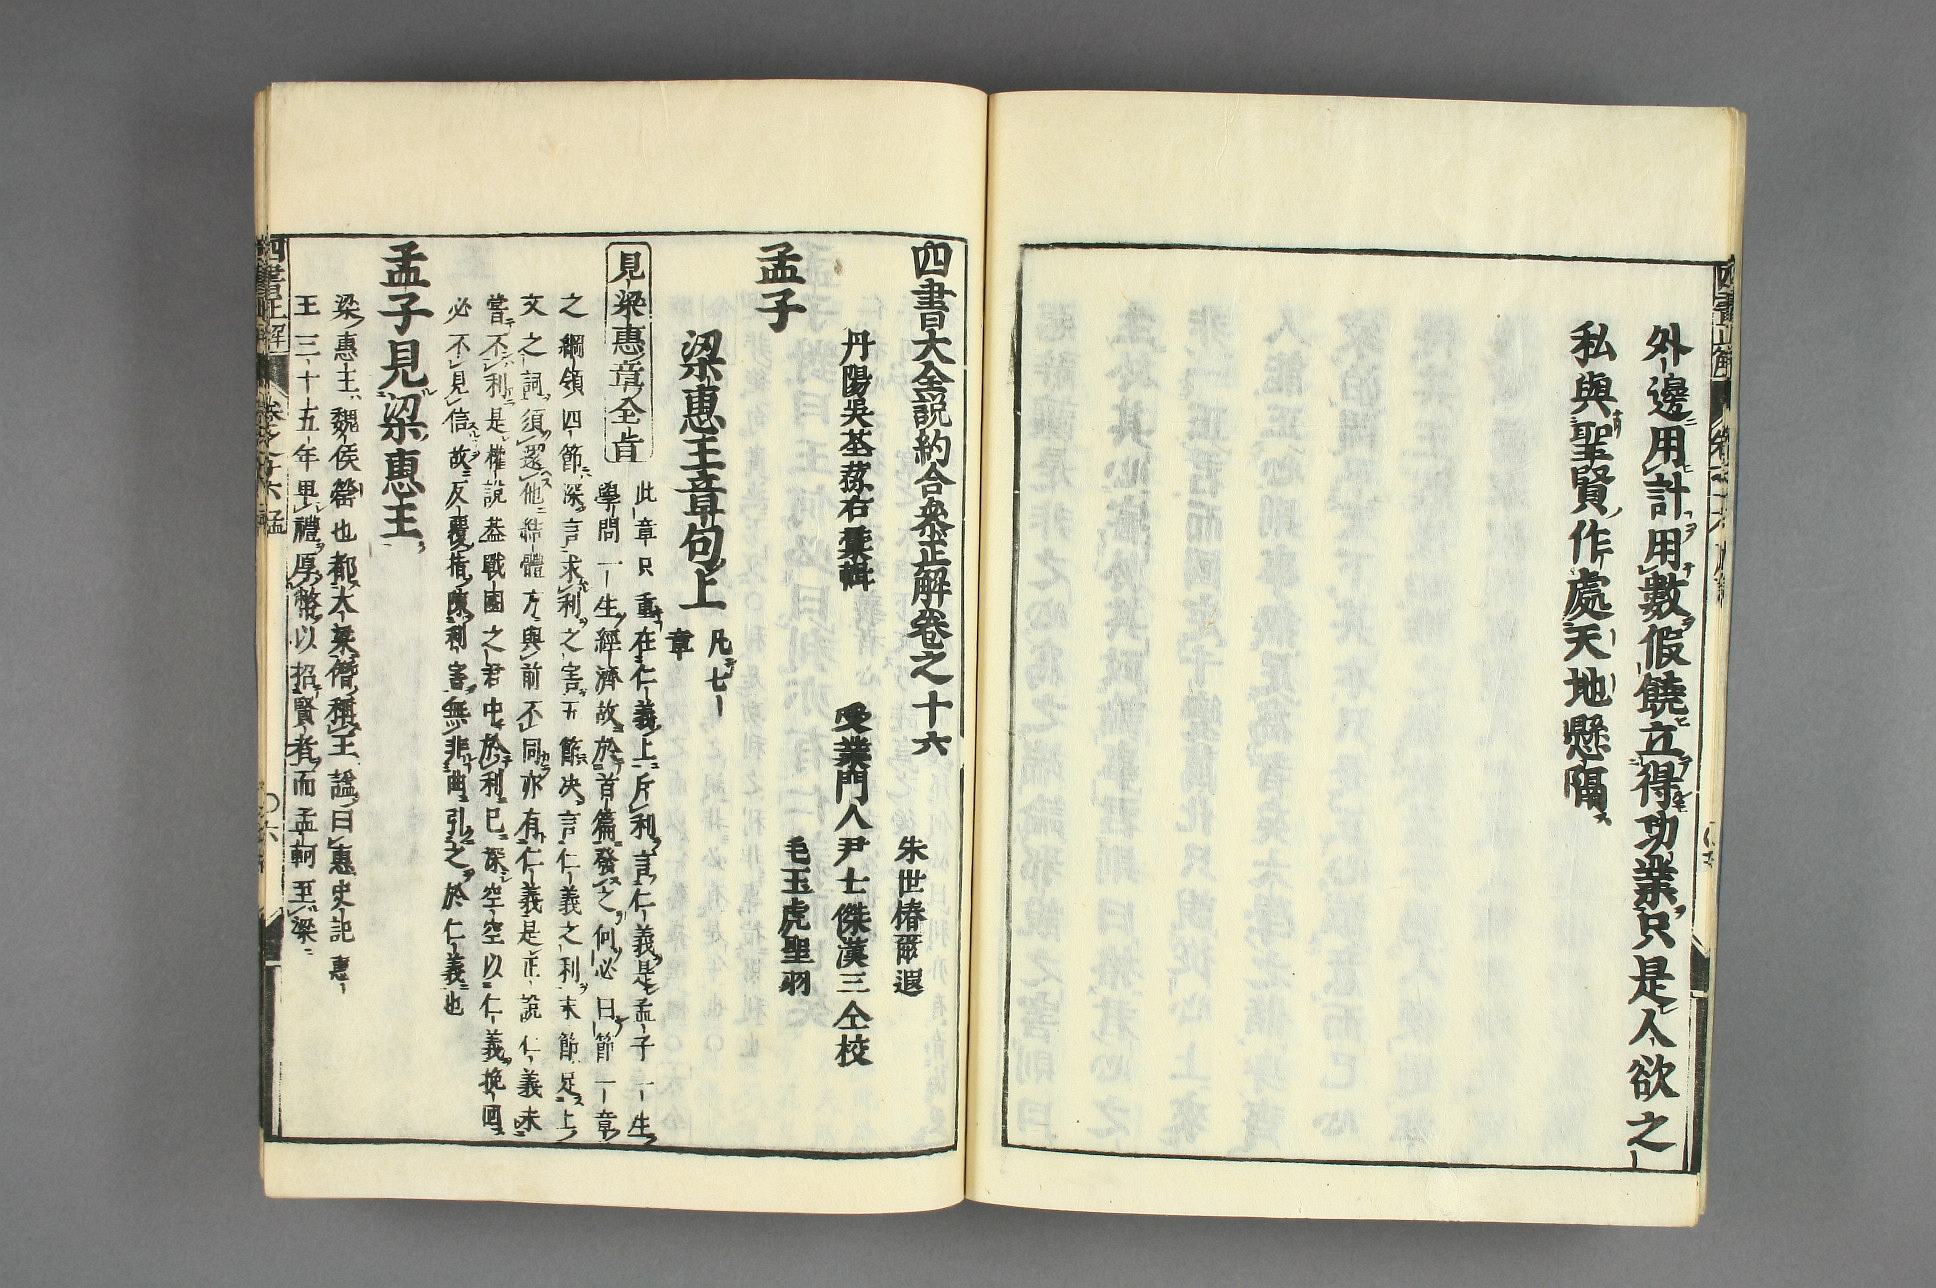 外邊用計用數假饒立得功業只是人欲之
私與聖賢作處天地懸隔
四書大全說約合參正解卷之十六
朱世椿爾遐
丹陽吳荃蓀右彙輯
受業門人尹士傑漢三仝校
毛玉虎聖羽
孟子
梁惠王章句上
凡七
章
見梁惠章全旨
此章只重在仁義上斥利言仁義是孟子一生
學問一生經濟故於首篇發之何必曰節一章
之綱領四節深言求利之害五節决言仁義之利末節足上
文之詞須還他結體方與前不同亦有仁義是正說仁義未
嘗不利是權說蓋戰國之君中於利已深空空以仁義挽回
必不見信故反覆指陳利害無非曲引之於仁義也
孟子見梁惠王
梁惠王魏侯罃也都大梁僭稱王諡曰惠史記惠
王三十五年卑禮厚幣以招賢者而孟軻至梁
四書正解
卷之十六孟
〇六